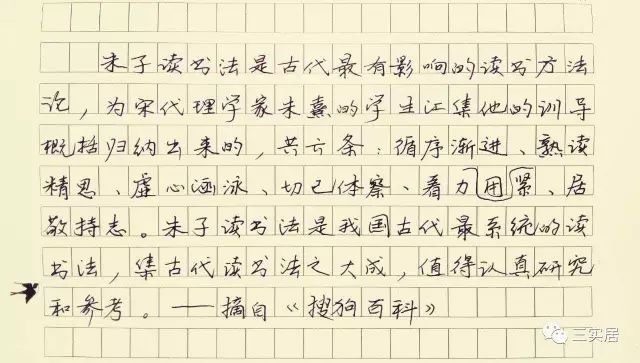 朱子读书法是古代最有影响的读书方法
论，为宋代理学家朱熹的学生汇集他的训导
概括归纳出来的，共六条：循序渐进、熟读
精思、虚心涵泳、切己体察、着力用紧、居
敬持志。朱子读书法是我国古代最系统的读
书法，集古代读书法之大成，值得认真研究
和参考。——摘自《搜狗百科》
三实居